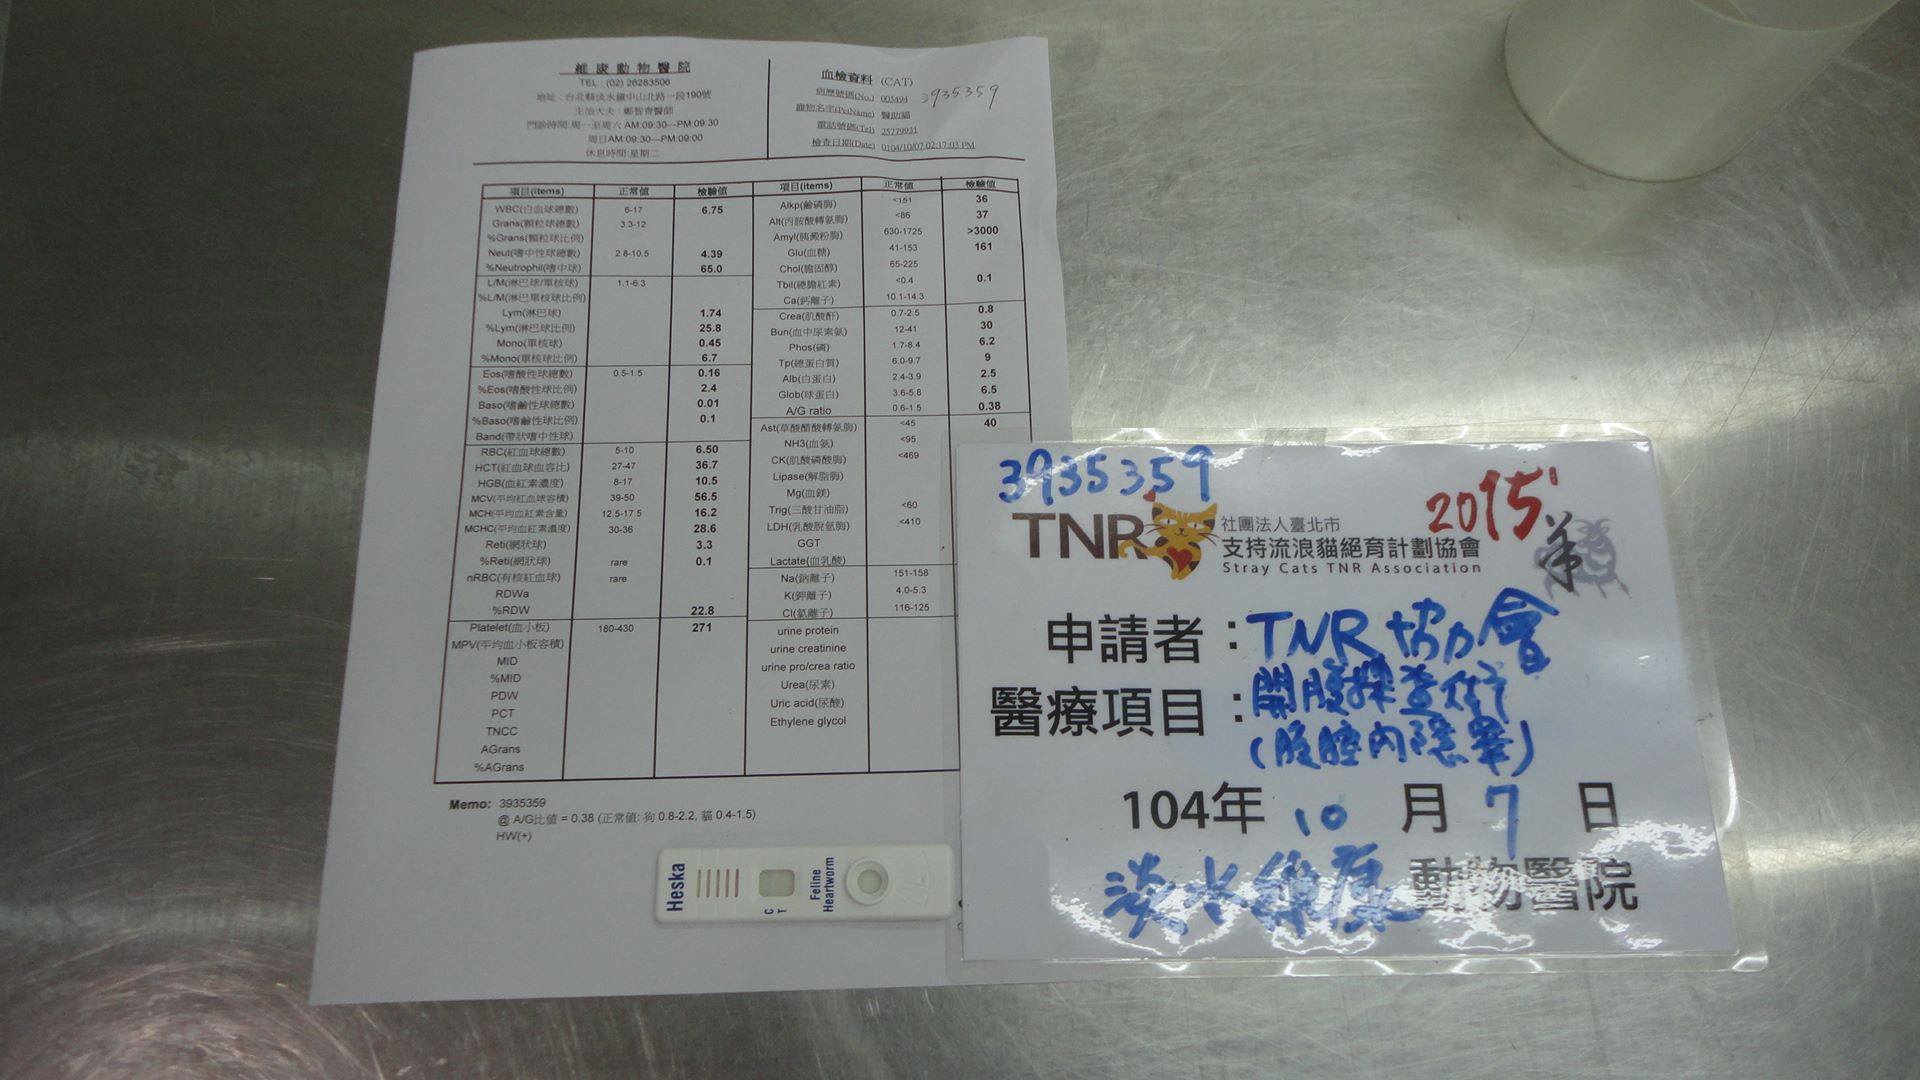 維康動物醫院
TEL : (02) 26283506
地址 : 台北縣淡水鎮中山北路一段190號
主治大夫 : 鄭智青醫師
門診時間:周一至周六 AM:09:30—PM:09:30
周日AM:09:30—PM:09:00
休息時間:星期二
血檢資料 (CAT)
病歷號碼(No.) 005494 3935359
寵物名字(PetName) 醫助貓
電話號碼(Tel) 25779931
檢查日期(Date) 0104/10/07 02:17:03 PM
項目(items) 正常值 檢驗值
WBC(白血球總數) 6-17 6.75
Grans(顆粒球總數) 3.3-12
%Grans(顆粒球比例)
Neut(嗜中性球總數) 2.8-10.5 4.39
%Neutrophil(嗜中球) 65.0
L/M(淋巴球/單核球) 1.1-6.3
%L/M(淋巴單核球比例)
Lym(淋巴球) 1.74
%Lym(淋巴球比例) 25.8
Mono(單核球) 0.45
%Mono(單核球比例) 6.7
Eos(嗜酸性球總數) 0.5-1.5 0.16
%Eos(嗜酸性球比例) 2.4
Baso(嗜鹼性球總數) 0.01
%Baso(嗜鹼性球比例) 0.1
Band(帶狀嗜中性球)
RBC(紅血球總數) 5-10 6.50
HCT(紅血球血容比) 27-47 36.7
HGB(血紅素濃度) 8-17 10.5
MCV(平均紅血球容積) 39-50 56.5
MCH(平均血紅素含量) 12.5-17.5 16.2
MCHC(平均血紅素濃度) 30-36 28.6
Reti(網狀球) 3.3
%Reti(網狀球) rare 0.1
nRBC(有核紅血球) rare
RDWa
%RDW 22.8
Platelet(血小板) 180-430 271
MPV(平均血小板容積)
MID
%MID
PDW
PCT
TNCC
AGrans
%AGrans
項目(items) 正常值 檢驗值
Alkp(鹼磷脢) <151 36
Alt(丙胺酸轉氨脢) <86 37
Amyl(胰澱粉脢) 630-1725 >3000
Glu(血糖) 41-153 161
Chol(膽固醇) 65-225
Tbil(總膽紅素) <0.4 0.1
Ca(鈣離子) 10.1-14.3
Crea(肌酸酐) 0.7-2.5 0.8
Bun(血中尿素氮) 12-41 30
Phos(磷) 1.7-8.4 6.2
Tp(總蛋白質) 6.0-9.7 9
Alb(白蛋白) 2.4-3.9 2.5
Glob(球蛋白) 3.6-5.8 6.5
A/G ratio 0.6-1.5 0.38
Ast(草酸醋酸轉氨脢) <45 40
NH3(血氨) <95
CK(肌酸磷酸脢) <469
Lipase(解脂脢)
Mg(血鎂)
Trig(三酸甘油脂) <60
LDH(乳酸脫氫脢) <410
GGT
Lactate(血乳酸)
Na(鈉離子) 151-158
K(鉀離子) 4.0-5.3
Cl(氯離子) 116-125
urine protein
urine creatinine
urine pro/crea ratio
Urea(尿素)
Uric acid(尿酸)
Ethylene glycol
Memo: 3935359
@ A/G比值 = 0.38 (正常值: 狗 0.8-2.2, 貓 0.4-1.5)
HW(+)
Heska
C
T
Feline
Heartworm
3935359
2015
羊
TNR
社團法人臺北市
支持流浪貓絕育計劃協會
Stray Cats TNR Association
申請者：TNR協會
醫療項目：開腹探查術
(腹腔內隱睪)
104年 10 月 7 日
淡水維康 動物醫院